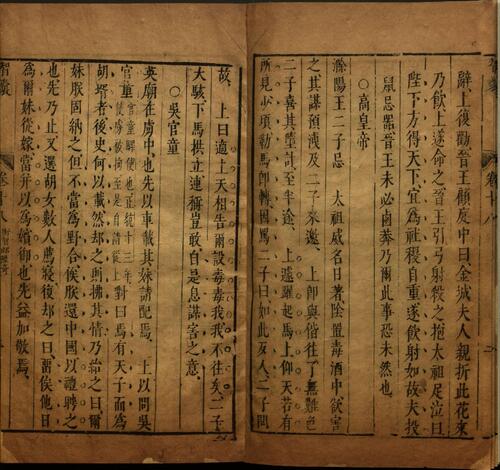 辭上復勸晉王顧庭中曰金城夫人親折此花來
乃飲上遂命之晉王引弓射殺之抱太祖足泣曰
陛下方得天下宜為社稷自重遂飲射如故夫投
鼠忌器晉王未必鹵莽乃爾此事恐未然也
○高皇帝
滁陽王二子忌　太祖威名日著陰置毒酒中欲害
之其謀預洩及二子來邀　上卽與偕往了無難色
二子喜其墮計至半途　上遽躍起馬上仰天若有
所見少頃勒馬卽轉因罵二子曰如此歹人二子問
故　上曰適上天相告爾設毒毒我我不往矣二子
大駭下馬拱立連稱豈敢自是息謀害之意
○吳官童
英廟在虜中也先以車載其妹請配焉　上以問吳
官童 官童驛使也正統十三年 使虜被拘至是自請從上 對曰焉有天子而為
胡壻者後史何以載然却之則拂其情乃紿之曰爾
妹朕固納之但不當為野合俟朕還中國以禮聘之
也先乃止又選胡女數人薦寢復却之曰留俟他日
為爾妹從嫁當并以為嬪御也先益加敬焉
智囊
卷十八